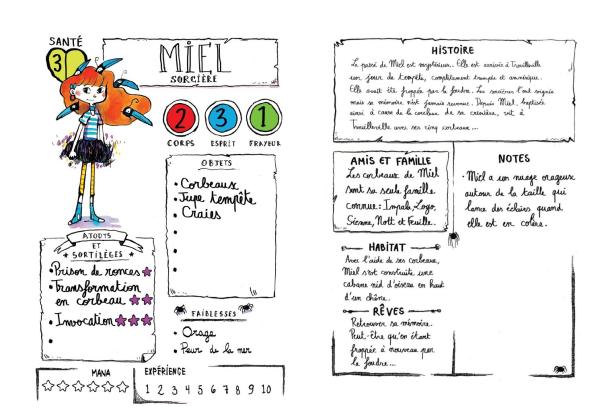 SANTÉ
3
MIEL
SORCIÈRE
2
3
1
CORPS
ESPRIT
FRAYEUR
OBJETS
• Corbeaux
• Jupe tempête
• Craies
•
•
•
ATOUTS
ET
SORTILÈGES
• Prison de ronces
• Transformation
en corbeau
• Invocation
•
FAIBLESSES
• Orage
• Peur de la mer
MANA
EXPÉRIENCE
1 2 3 4 5 6 7 8 9 10
HISTOIRE
Le passé de Miel est mystérieux. Elle est arrivée à Trouilleville
un jour de tempête, complètement trempée et amnésique.
Elle avait été frappée par la foudre. Les sorcières l'ont soignée
mais sa mémoire n'est jamais revenue. Depuis Miel, baptisée
ainsi à cause de la couleur de sa crinière, vit à
Trouilleville avec ses cinq corbeaux...
AMIS ET FAMILLE
Les corbeaux de Miel
sont sa seule famille
connue : Impala, Logo,
Sienne, Nott et Feuille.
NOTES
• Miel a un nuage orageux
autour de la taille qui
lance des éclairs quand
elle est en colère.
HABITAT
Avec l'aide de ses corbeaux,
Miel s'est construite une
cabane nid d'oiseau en haut
d'un chêne.
RÊVES
Retrouver sa mémoire.
Peut-être qu'en étant
frappée à nouveau par
la foudre...